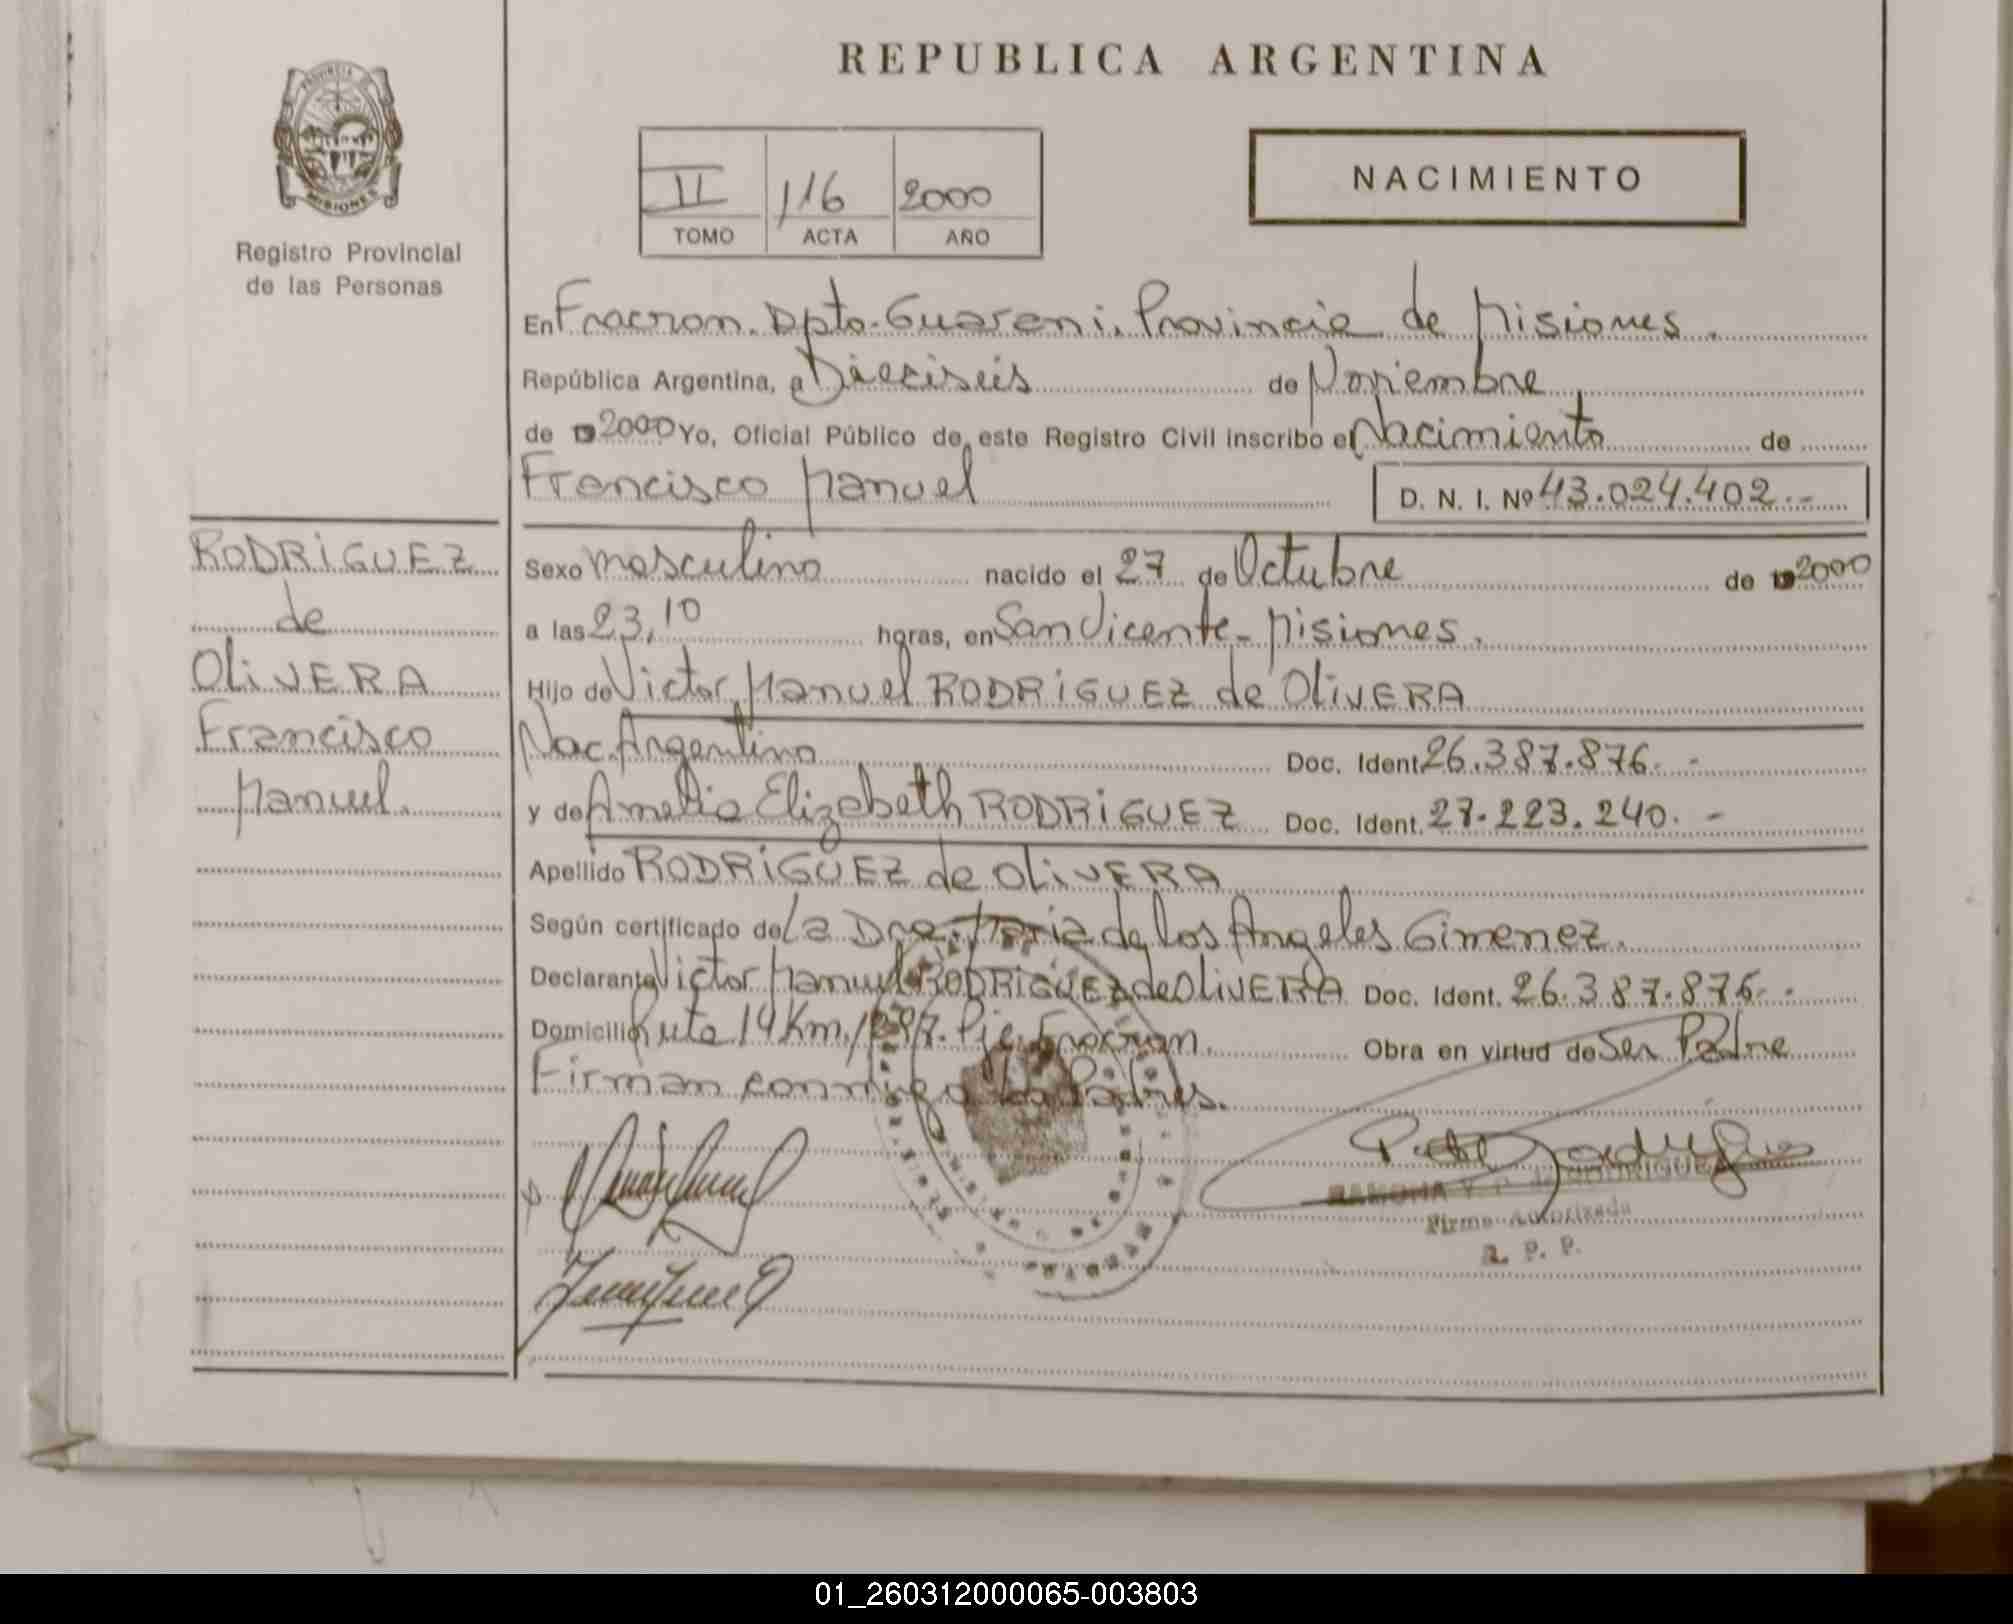 REPUBLICA ARGENTINA
PROVINCIA DE
MISIONES
Registro Provincial
de las Personas
II 116 2000
TOMO ACTA AÑO
NACIMIENTO
En Fracron. Dpto. Guarani. Provincia de Misiones.
República Argentina, a Dieciseis de Noviembre
de 2000 Yo, Oficial Público de este Registro Civil inscribo el Nacimiento de
Francisco Manuel D. N. I. Nº 43.024.402.-
RODRIGUEZ
de
OLIVERA
Francisco
Manuel.
Sexo masculino nacido el 27 de Octubre de 2000
a las 23,10 horas, en San Vicente - Misiones.
Hijo de Victor Manuel RODRIGUEZ de OLIVERA
Nac. Argentino Doc. Ident. 26.387.876. -
y de Amelia Elizabeth RODRIGUEZ Doc. Ident. 27.223.240. -
Apellido RODRIGUEZ de OLIVERA
Según certificado de La Dra. Maria de los Angeles Gimenez.
Declarante Victor Manuel RODRIGUEZ de OLIVERA Doc. Ident. 26.387.876. -
Domicilio Ruta 14 Km. 1297. Pje. Fracran. Obra en virtud de Ser Padre
Firman conmigo los Padres.
RAMONA V. P. de RODRIGUEZ
Firma Autorizada
R. P. P.
01_260312000065-003803